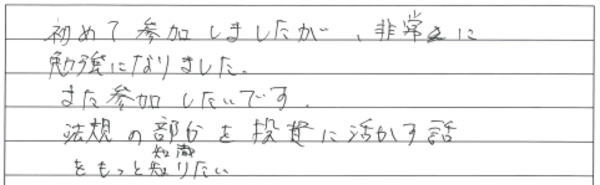 初めて参加しましたが、非常に
勉強になりました。
また参加したいです。
法規の部分を投資に活かす話
知識
をもっと知りたい